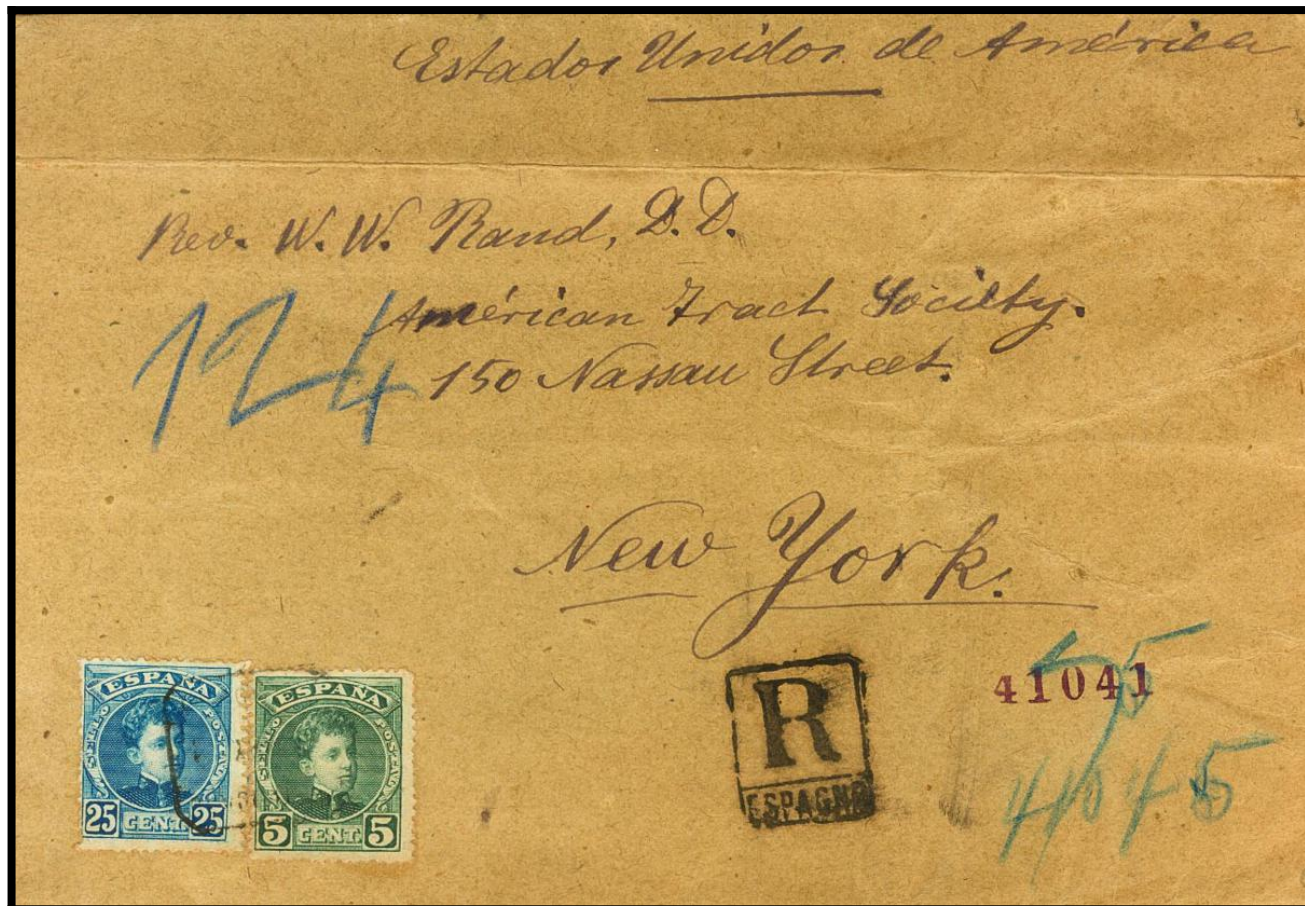 Estados Unidos de América
Rev. W. W. Rand, D. D.
American Tract Society.
124
150 Nassau Street.
New York.
ESPAÑA
SELLO POSTAL
25 CENT. 25
ESPAÑA
SELLO POSTAL
5 CENT. 5
R
ESPAGNE
41041
45
41045